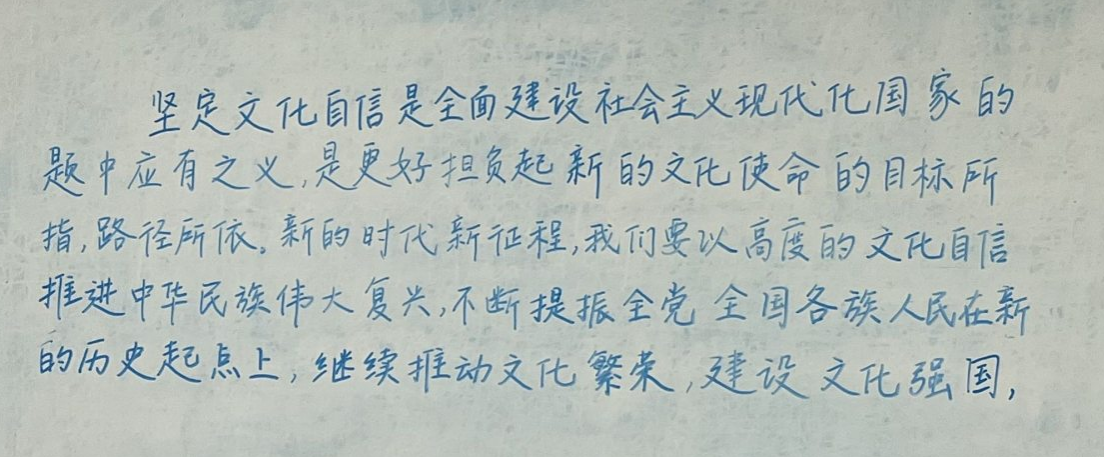 坚定文化自信是全面建设社会主义现代化国家的
题中应有之义,是更好担负起新的文化使命的目标所
指,路径所依。新的时代新征程,我们要以高度的文化自信
推进中华民族伟大复兴,不断提振全党全国各族人民在新
的历史起点上,继续推动文化繁荣,建设文化强国,